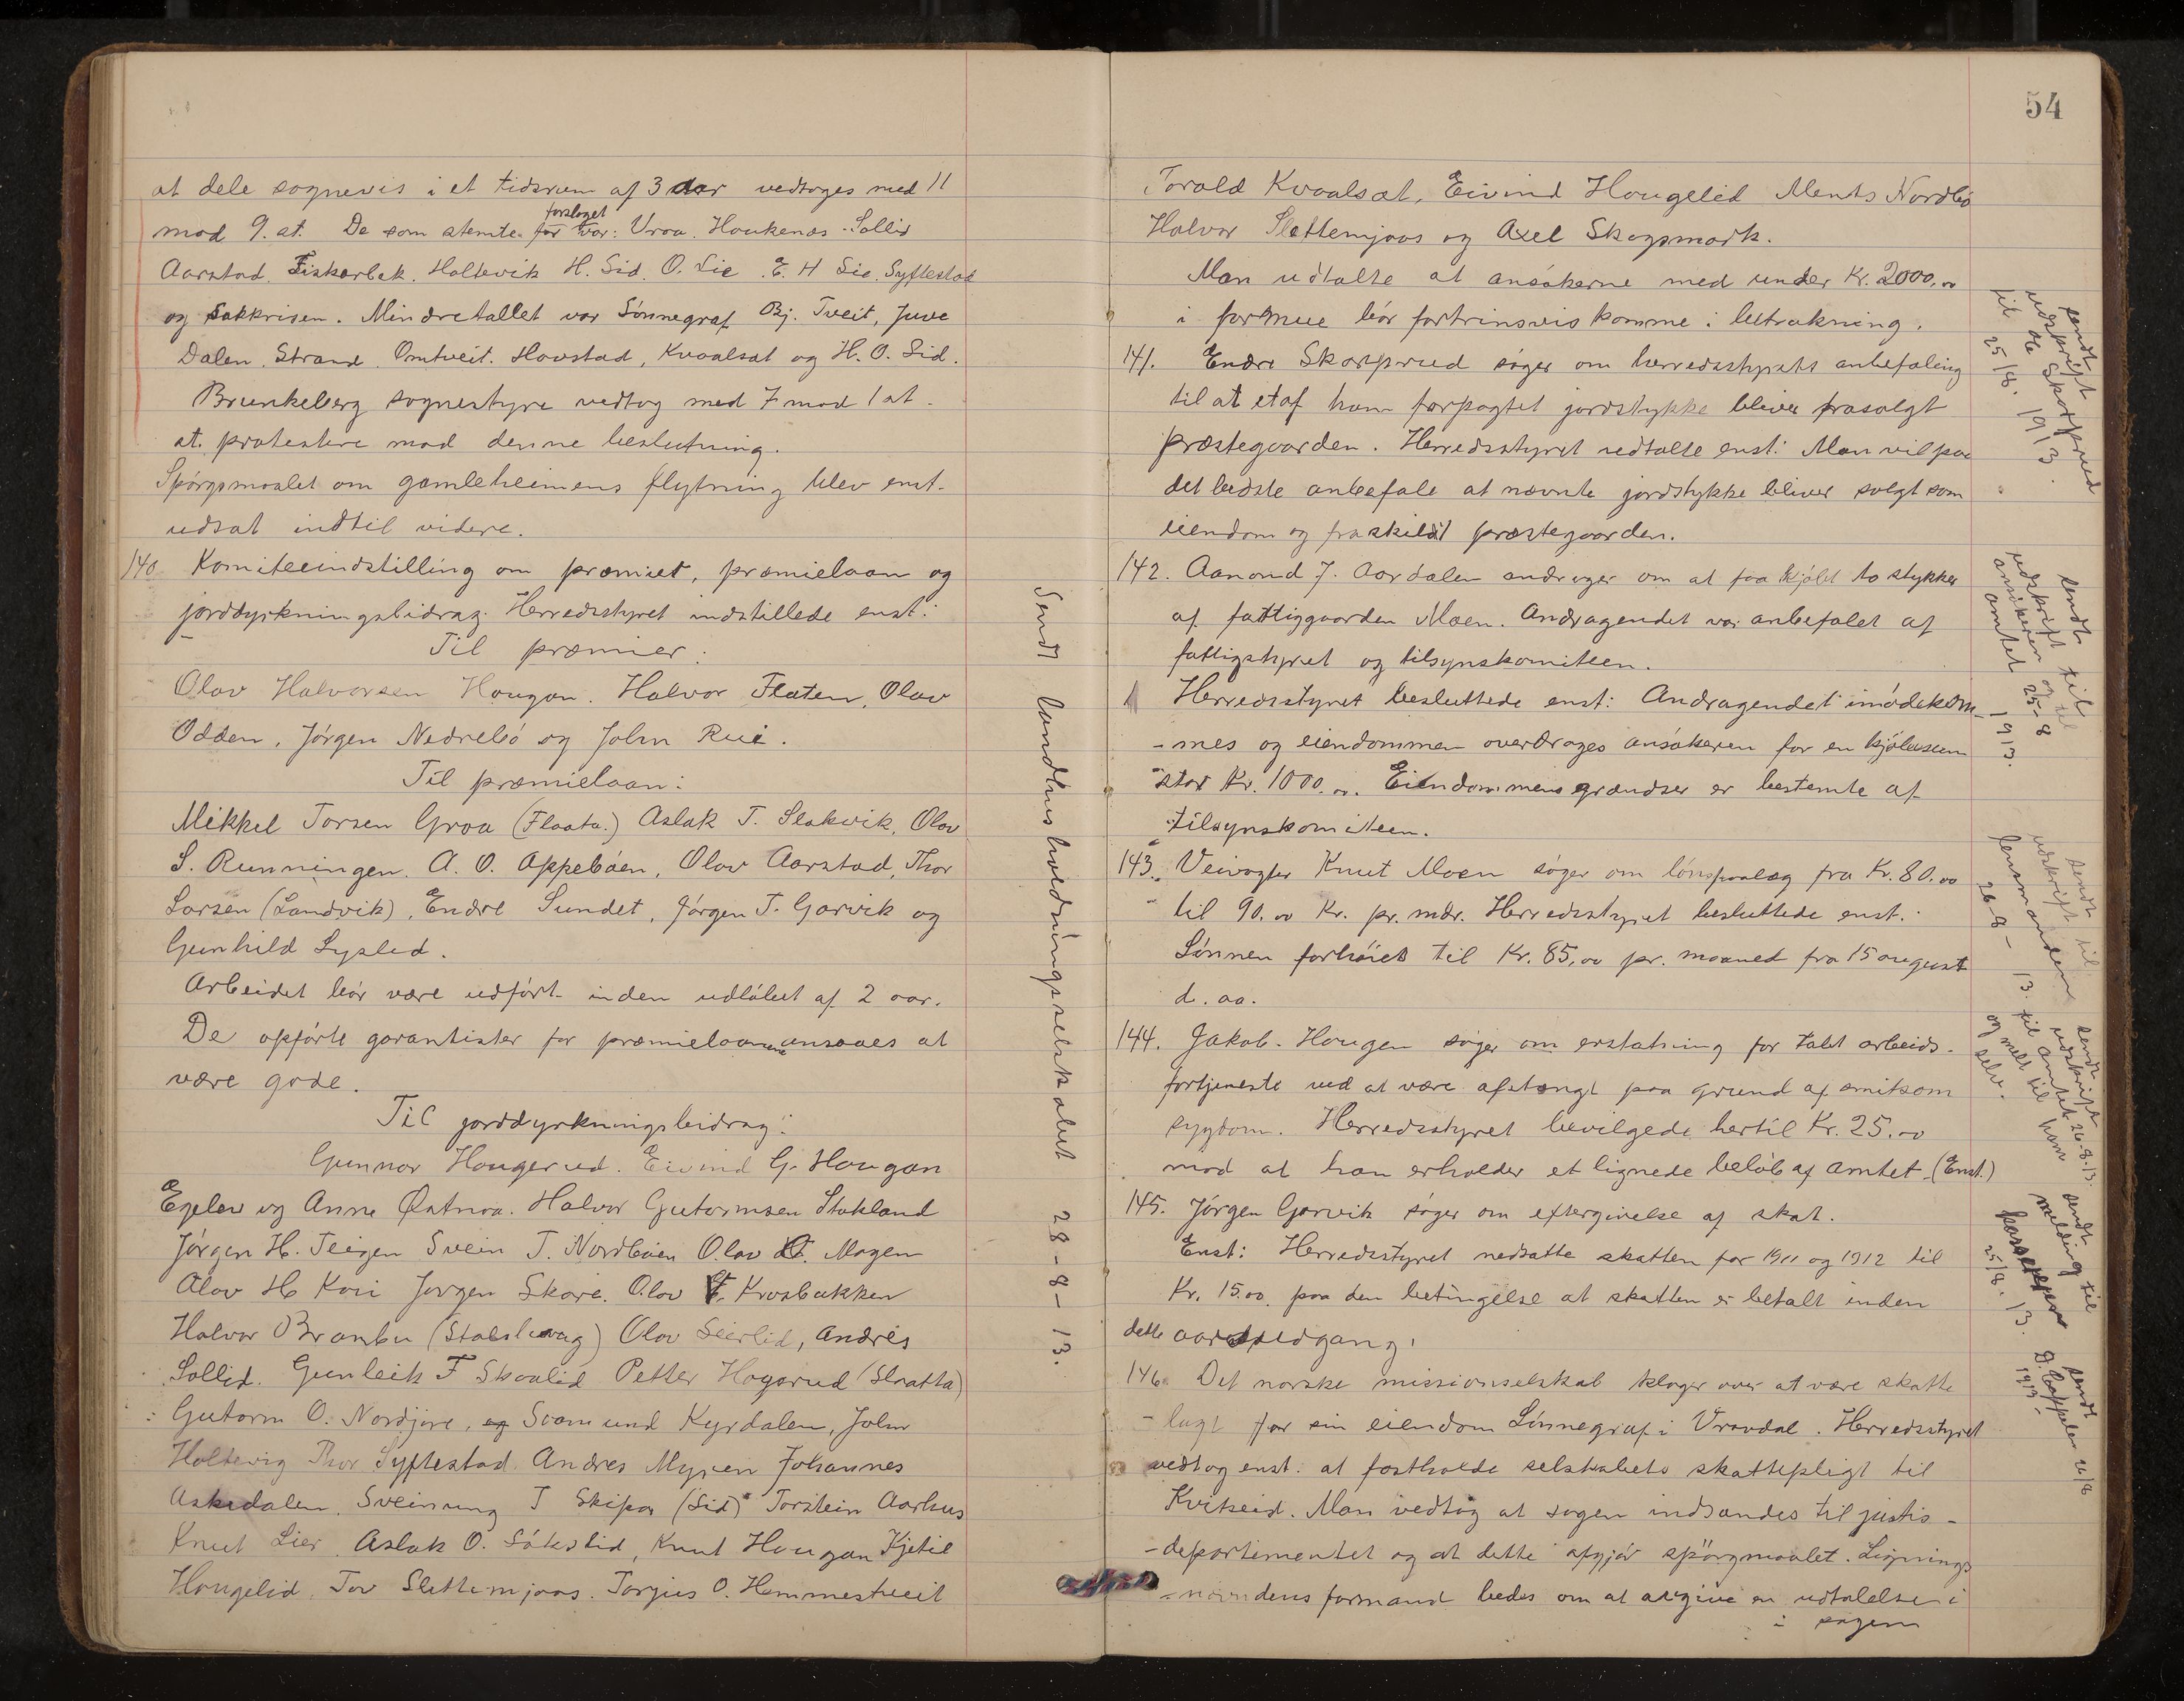 at dele sognevis i et tidsrum af 3 aar vedtoges med 11
mod 9. st. De som stemte for forslaget var: Vraa. Haukenæs. Sollid
Aarstad. Fiskerbæk. Holtevik H. Lid. O. Lie. E. H Lie. Syftestad
og Sakkrisen. Mindretallet var Sønnegraf Bj. Tveit, Juve
Dalen. Strand. Omtveit. Hovstad, Kvaalsæt og H. O. Lid.
Brunkeberg sognestyre vedtog med 7 mod 1 st.
at protestere mod denne beslutning.
Spørgsmaalet om gamleheimens flytning blev enst.
udsat indtil videre.
140 Komiteeindstilling om præmiet, præmielaan og
jorddyrkningsbidrag. Herredsstyret indstillede enst:
Til præmier:
Olav Halvorsen Hougan. Halvor Flaten, Olav
Odden, Jørgen Nedrebø og John Rui.
Til præmielaan:
Mikkel Torsen Groa (Flaata.) Aslak T. Slakvik, Olav
S. Runningen. A. O. Appebøen, Olav Aarstad, Thor
Larsen (Landvik), Endre Sundet, Jørgen T. Garvik og
Gunhild Lyslid.
Arbeidet bør være udført inden udløbet af 2 aar.
De opførte garantister for præmielaanene ansaaes at
være gode.
Til jorddyrkningsbidrag:
Gunnar Hougerud. Eivind G. Hougan
Egelev og Anne Østmoa. Halvor Gutormsen Stokland
Jørgen H. Teigen Svein T. Nordbøen Olav O. Mogen
Olav H Kori Jørgen Skare. Olav T. Krosbakken
Halvor Brambu (Stabshaug) Olav Lierlid, Andres
Sollid. Gunleik F Skoulid Petter Hagarud (Slaatta)
Gutorm O. Nordjore, og Svamund Kyrdalen, John
Holtevig Thor Syftestad Andres Myren Johannes
Askedalen. Sveinung T Skipa (Lid) Torstein Aarhus
Knut Lier. Aslak O. Søkslid, Knut Hougan Kjetil
Hougelid, Tov Slettemjaas. Torjus O. Hemmestveit
Sendt landhusholdningsselskabet 28-8-13.
54
Torald Kvaalsæt, Eivind Hougelid Ments Nordbø
Halvor Slettemjaas og Axel Skogsmark.
Man udtalte at ansøkerne med under Kr. 2000,00
i formue bør fortrinsvis komme i betrakning.
141. Endre Skarprud søger om herredsstyrets anbefaling
til at et af ham forpagtet jordstykke bliver frasolgt
præstegaarden. Herredsstyret udtalte enst: Man vil paa
det bedste anbefale at nævnte jordstykke bliver solgt som
eiendom og fraskildt præstegaarden.
142. Aanond J. Aardalen andrager om at faa kjøbt to stykker
af fattiggaarden Moen. Andragendet var anbefalet af
fattigstyret og tilsynskomiteen.
Herredsstyret besluttede enst: Andragendet imødekom-
-mes og eiendommen overdrages ansøkeren for en kjøbesum
stor Kr. 1000.00. Eiendommens grændser er bestemte af
tilsynskomiteen.
143. Veivogter Knut Moen søger om lønspaalæg fra Kr. 80.00
til 90.00 Kr. pr. mdr. Herredsstyret besluttede enst.:
Lønnen forhøies til Kr. 85,00 pr. maaned fra 15 august
d. aa.
144. Jakob Hougen søger om erstatning for tabt arbeids-
fortjeneste ved at være afstængt paa grund af smitsom
sygdom. Herredsstyret bevilgede hertil Kr. 25.00
mod at han erholder et lignede beløb af amtet. (Enst.)
145. Jørgen Garvik søger om eftergivelse af skat.
Enst: Herredsstyret nedsatte skatten for 1911 og 1912 til
Kr. 15.00. paa den betingelse at skatten er betalt inden
dette aars udgang.
146. Det norske missionselskab klager over at være skatte
-lagt for sin eiendom Sønnegraf i Vraadal. Herredsstyret
vedtog enst. at fastholde selskabets skattepligt til
Kviteseid. Man vedtog at sagen indsendes til justis-
-departementet og at dette afgjør spørgmaalet. Lignings
-nævndens formand bedes om at afgive en udtalelse i
i sagen
sendt
udskrift
til E Skarprud
25/8. 1913.
sendt til
udskrift til
ansøkeren og
amtet 25-8
1913.
sendt til
udskrift
lensmanden
26-8-13.
sendt
udskrift
til amtet 26-8-13.
og meld. til ham
selv.
sendt
melding til
kassereren
25/8. 13.
sendt
D. Cappelen 26/8
1913-